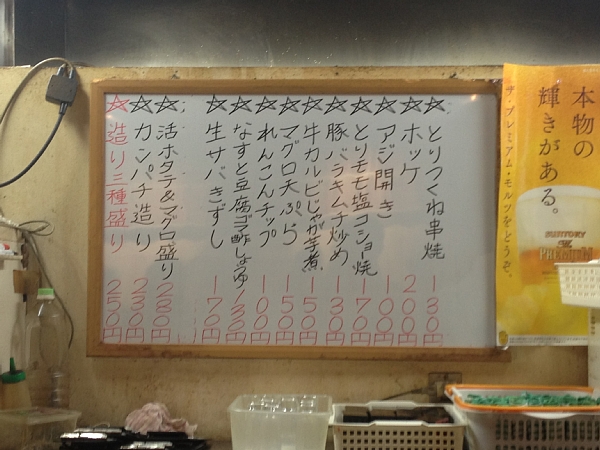 本物の
輝きがある。
ザ・プレミアム・モルツをどうぞ。
SUNTORY
PREMIUM
☆とりつくね串焼 130円
☆ホッケ 200円
☆アジ開き 100円
☆とりモモ塩コショー焼 170円
☆豚バラキムチ炒め 130円
☆牛カルビじゃが芋煮 150円
☆マグロ天ぷら 150円
☆れんこんチップ 100円
☆なすと豆腐ゴマ酢しょうゆ 130円
☆生サバきずし 170円
☆活ホタテ&マグロ盛り 280円
☆カンパチ造り 230円
☆造り三種盛り 250円